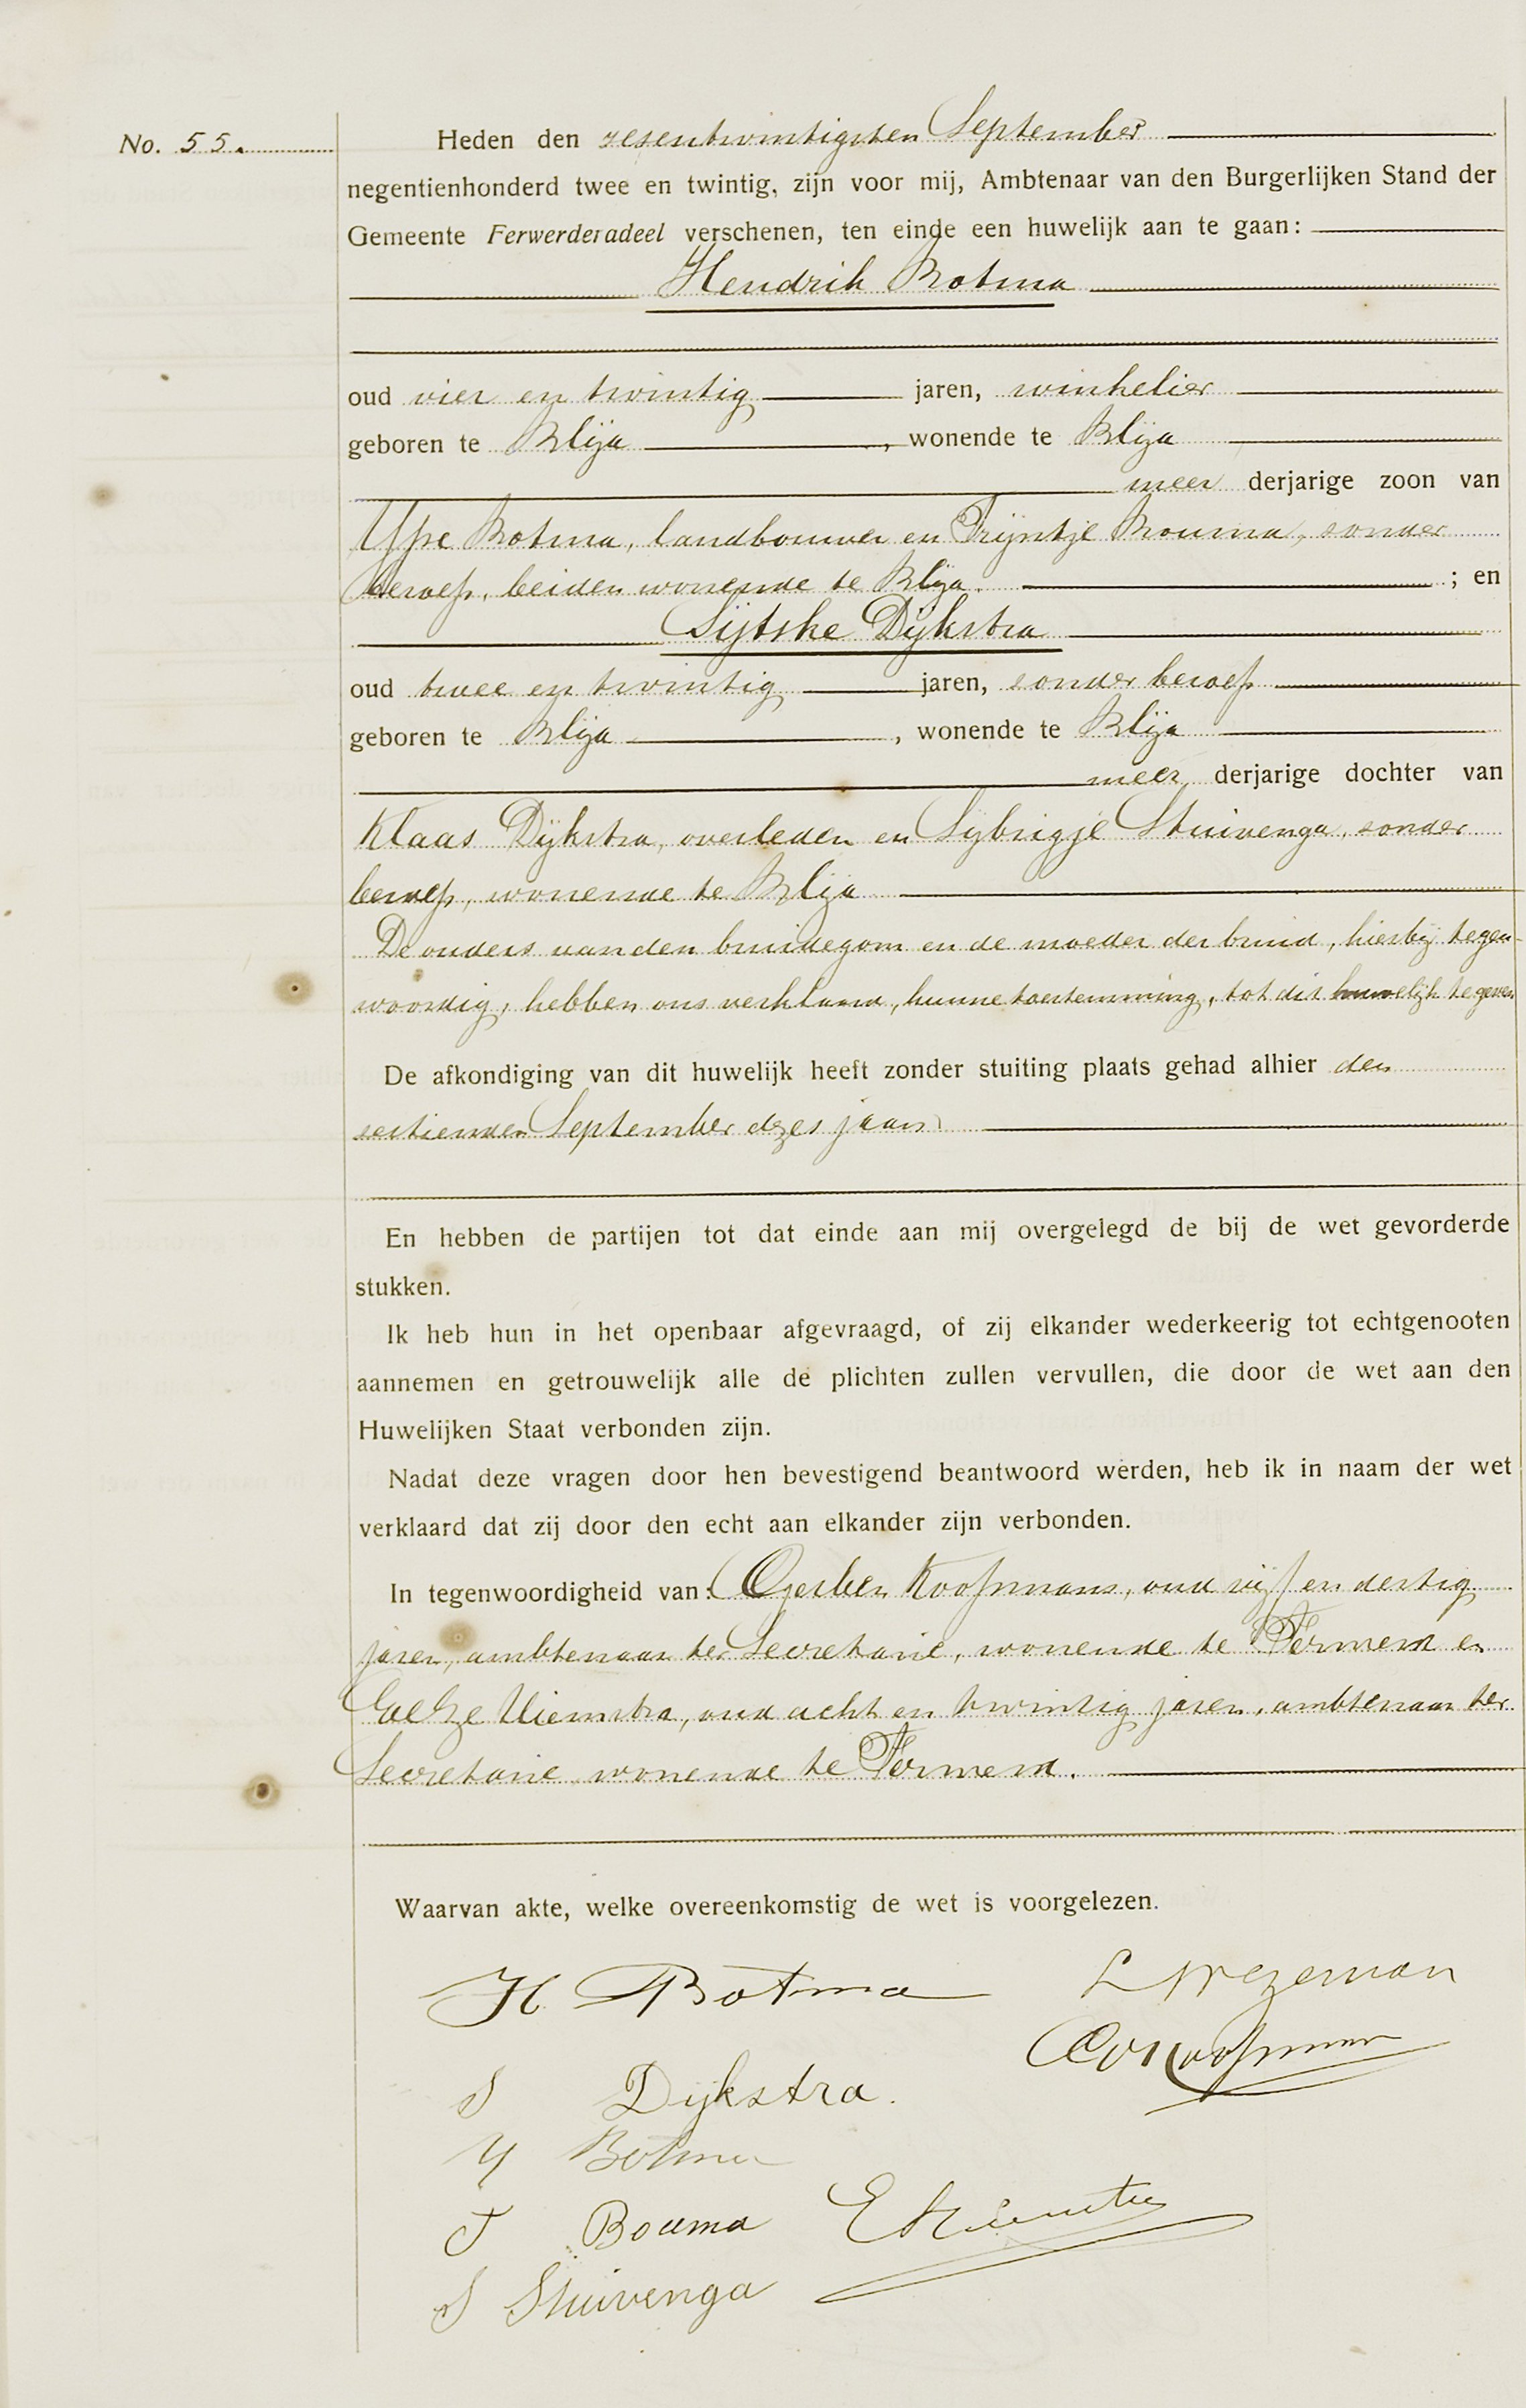 No. 55.
Heden den zesentwintigsten September
negentienhonderd twee en twintig, zijn voor mij, Ambtenaar van den Burgerlijken Stand der
Gemeente Ferwerderadeel verschenen, ten einde een huwelijk aan te gaan:
Hendrik Botma
oud vier en twintig jaren, winkelier
geboren te Blija, wonende te Blija
meer derjarige zoon van
Ype Botma, landbouwer en Trijntje Bouma, zonder
beroep, beiden wonende te Blija. ; en
Sijtske Dijkstra
oud twee en twintig jaren, zonder beroep
geboren te Blija, wonende te Blija
meer derjarige dochter van
Klaas Dijkstra, overleden en Sijbrigje Stuivenga, zonder
beroep, wonende te Blija
De ouders van den bruidegom en de moeder der bruid, hierbij tegen-
woordig, hebben ons verklaard, hunne toestemming, tot dit huwelijk te geven
De afkondiging van dit huwelijk heeft zonder stuiting plaats gehad alhier den
zestienden September dezes jaars
En hebben de partijen tot dat einde aan mij overgelegd de bij de wet gevorderde
stukken.
Ik heb hun in het openbaar afgevraagd, of zij elkander wederkeerig tot echtgenooten
aannemen en getrouwelijk alle de plichten zullen vervullen, die door de wet aan den
Huwelijken Staat verbonden zijn.
Nadat deze vragen door hen bevestigend beantwoord werden, heb ik in naam der wet
verklaard dat zij door den echt aan elkander zijn verbonden.
In tegenwoordigheid van: Gerben Koopmans, oud vijf en dertig
jaren, ambtenaar ter Secretarie, wonende te Ferwerd en
Eeltze Hiemstra, oud acht en twintig jaren, ambtenaar ter
Secretarie wonende te Ferwerd.
Waarvan akte, welke overeenkomstig de wet is voorgelezen.
H Botma
L Wezeman
G Koopmans
S Dijkstra.
Y Botma
T Bouma
E Hiemstra
S Stuivenga